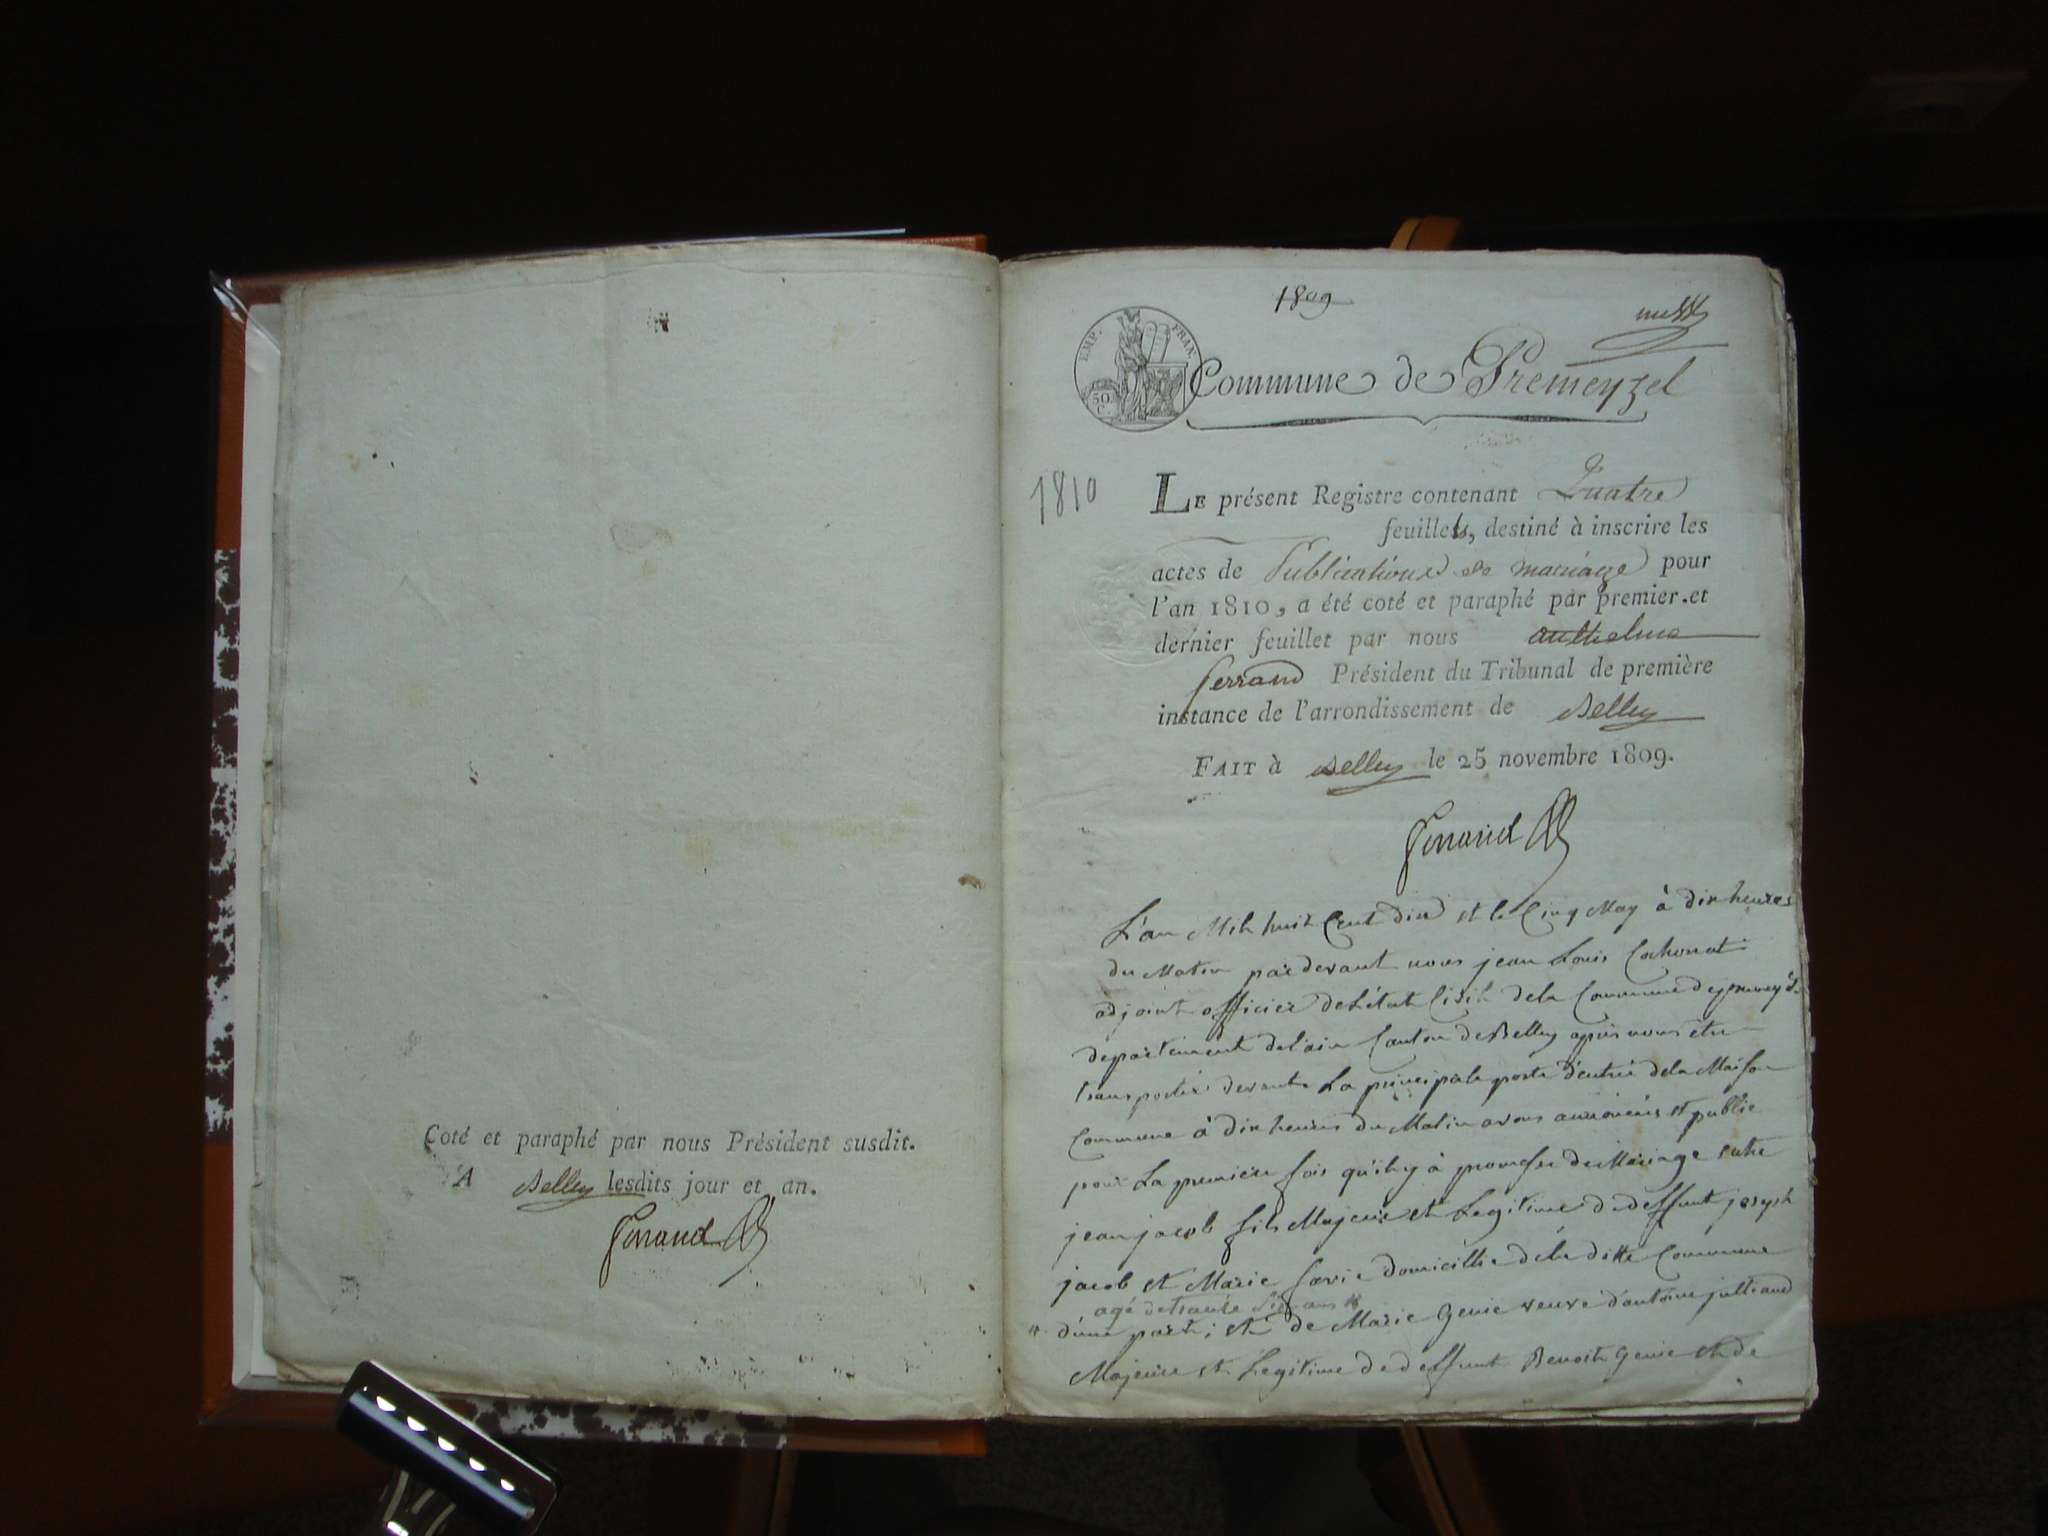 Coté et paraphé par nous Président susdit.
A Belley lesdits jour et an.
Ferrand
1809
EMP. FRAN.
50 C.
Commune de Premeyzel
1810
LE présent Registre contenant Quatre
feuillets, destiné à inscrire les
actes de Publications de mariage pour
l'an 1810, a été coté et paraphé par premier et
dernier feuillet par nous anthelme
ferrand Président du Tribunal de première
instance de l'arrondissement de Belley
FAIT à Belley le 25 novembre 1809.
Ferrand
L'an Mil huit Cent dix et le Cinq May à dix heures
du Matin pardevant nous jean Louis Cochonat
adjoint officier de l'état Civil de la Commune de
departement de l'ain Canton de Belley après nous etre
transporté devant La principale porte d'entrée de la Maison
Commune à dix heures du Matin avons annoncés et publie
pour La premiere fois qu'il y à promesse de Mariage entre
jean jacob fils Majeur et Legitime de deffunt joseph
jacob et Marie domicillié de la ditte Commune
agé de trante Six ans
d'une part; et de Marie Genie veuve d'antoine julliand
Majeure et Legitime de deffunt Benoit Genie et de